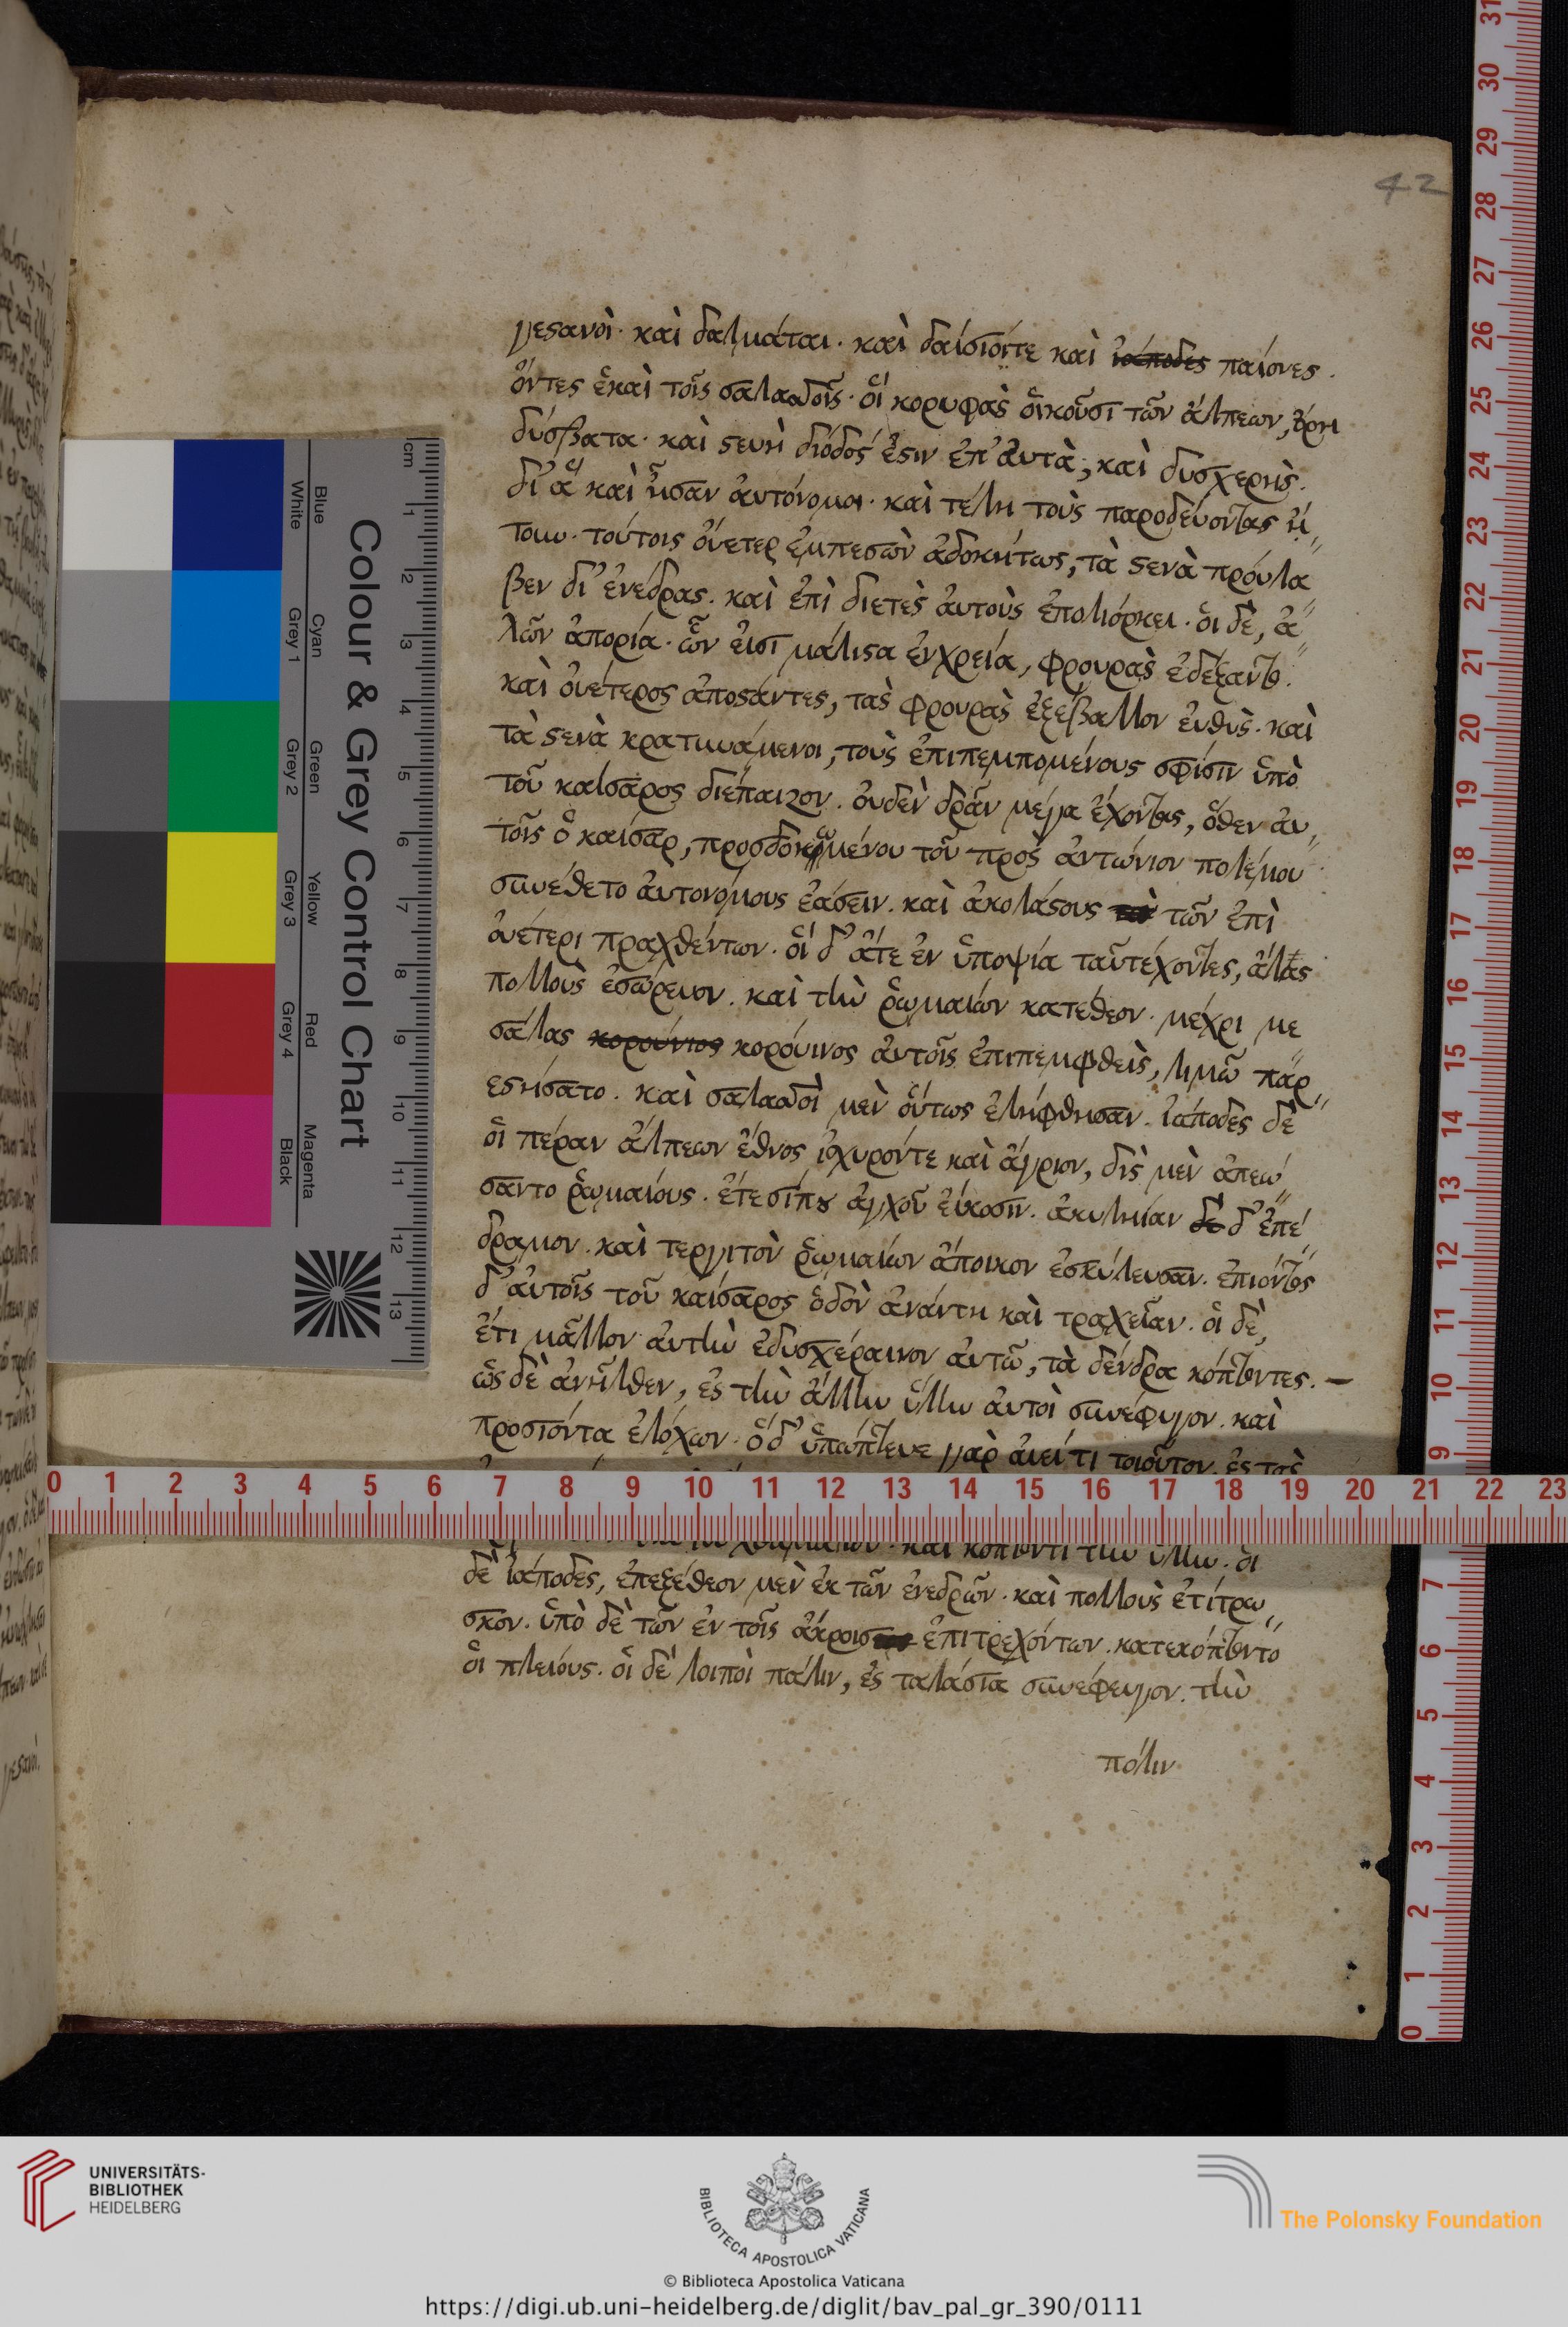 42
γεστανοὶ· καὶ δαλμάται· καὶ δαίσιοίτε καὶ ἰάποδες παίονες.
ὄντες ἒκαὶ τοῖς σαλασσοῖς· οἳ κορυφὰς οἰκοῦσι τῶν ἄλπεων, ὄρη
δύσβατα· καὶ στενὴ δίοδός ἐστιν ἐπ' αυτὰ, καὶ δυσχερὴς.
δι' ἃ καὶ ἦσαν ἀυτόνομοι· καὶ τέλη τοὺς παροδεύοντας ἤ
τουν· τούτοις ὀυέτερ ἐμπεσὼν ἀδοκήτως, τὰ στενὰ πρόυλα
βεν δι' ἐνέδρας. καὶ ἐπὶ διετὲς ἀυτοὺς ἐπολιόρκει· ὁι δὲ, ἁ
λῶν ἀπορία· ὧν εἰσι μάλιστα ἐνχρεία, φρουρὰς ἐδέξαντο.
καὶ ὀυέτερος ἀποστάντες, τὰς φρουρὰς ἐξεβαλλον ἐυθὺς· καὶ
τὰ στενὰ κρατυνάμενοι, τοὺς ἐπιπεμπομένους σφίσιν ὑπὸ
τοῦ καίσαρος διέπαιζον. ὀυδὲν δρᾶν μέγα ἔχοντας, ὅθεν ἀυ
τοῖς ὁ καίσαρ, προσδοκωμένου τοῦ πρὸς ἀντώνιον πολέμου
συνέθετο ἀυτονόμους ἐάσειν. καὶ ἀκολάστους τῶν ἐπὶ
ὀυέτερι πραχθέντων. οἳ δ' ἅτε ἐν ὑποψία ταῦτέχοντες, ἅλας
πολλοὺς ἐσώρευον. καὶ τὴν ῥωμαίων κατέθεον· μέχρι με
σάλας κορούνιος κορόυινος ἀυτοῖς ἐπιπεμφθεὶς, λιμῶ παρ
εστήσατο. καὶ σαλασσοὶ μὲν ὅυτως ἐλήφθησαν. ἰάποδες δὲ
ὁι πέραν ἄλπεων ἔθνος ἰσχυρόντε καὶ ἄγριον, δὶς μὲν ἀπεώ
σαντο ῥωμαίους. ἔτεσίπου ἀγχοῦ εἴκοσιν. ἀκυληίαν δὲ δ' ἐπέ
δραμον. καὶ τεργιτὸν ῥωμαίων ἄποικον ἐσκύλευσαν. ἐπιόντος
δ' ἀυτοῖς τοῦ καίσαρος ὁδὸν ἀνάντη καὶ τραχεῖαν. ὁι δὲ,
ἔτι μᾶλλον ἀυτὴν ἐδυσχέραινον ἀυτῶ, τὰ δένδρα κόπτοντες. –
ὡς δὲ ἀνῆλθεν, ἐς τὴν ἄλλην ὕλην ἀυτοὶ συνέφυγον. καὶ
προσιόντα ἐλόχων. ὁ δ' ὑπώπτευε γὰρ ἀιεί τι τοιοῦτον, ἐς τὰς
καὶ κόπτοντι τὴν ὕλην. ὁι
δὲ ἰάποδες, ἐπεξέθεον μὲν ἐκ τῶν ἐνεδρῶν. καὶ πολλοὺς ἐτίτρω
σκον. ὑπὸ δὲ τῶν ἐν τοῖς ἄκροις ἐπιτρεχόντων. κατεκόπτοντο
ὁι πλείους. ὁι δὲ λοιποὶ πάλιν, ἐς ταλάσια συνέφευγον. τὴν
πόλιν
Colour & Grey Control Chart
Blue Cyan Green Yellow Red Magenta
White Grey 1 Grey 2 Grey 3 Grey 4 Black
cm 1 2 3 4 5 6 7 8 9 10 11 12 13
0 1 2 3 4 5 6 7 8 9 10 11 12 13 14 15 16 17 18 19 20 21 22 23
31 30 29 28 27 26 25 24 23 22 21 20 19 18 17 16 15 14 13 12 11 10 9 7 6 5 4 3 2 1 0
UNIVERSITÄTS-
BIBLIOTHEK
HEIDELBERG
BIBLIOTECA APOSTOLICA VATICANA
The Polonsky Foundation
© Biblioteca Apostolica Vaticana
https://digi.ub.uni-heidelberg.de/diglit/bav_pal_gr_390/0111